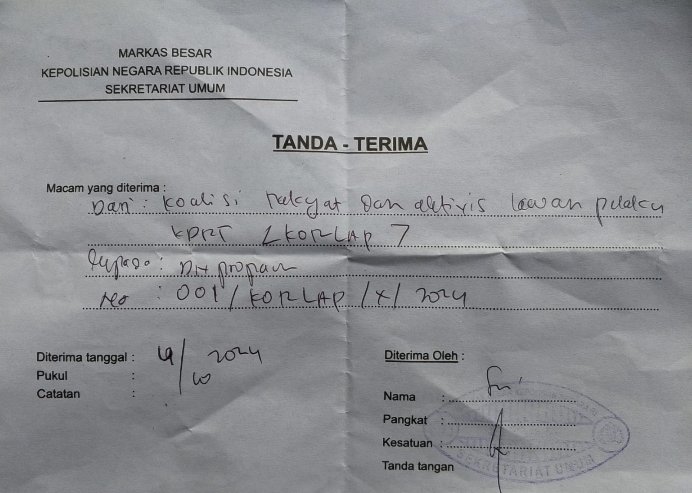 MARKAS BESAR
KEPOLISIAN NEGARA REPUBLIK INDONESIA
SEKRETARIAT UMUM
TANDA - TERIMA
Macam yang diterima :
Dari : Koalisi Rakyat dan aktivis Lawan pelaku
KDRT
: 
No : 001/KORLAP/X/2024
Diterima tanggal : 2024
Pukul : 10
Catatan :
Diterima Oleh :
Nama :
Pangkat :
Kesatuan :
Tanda tangan
SEKRETARIAT UMUM